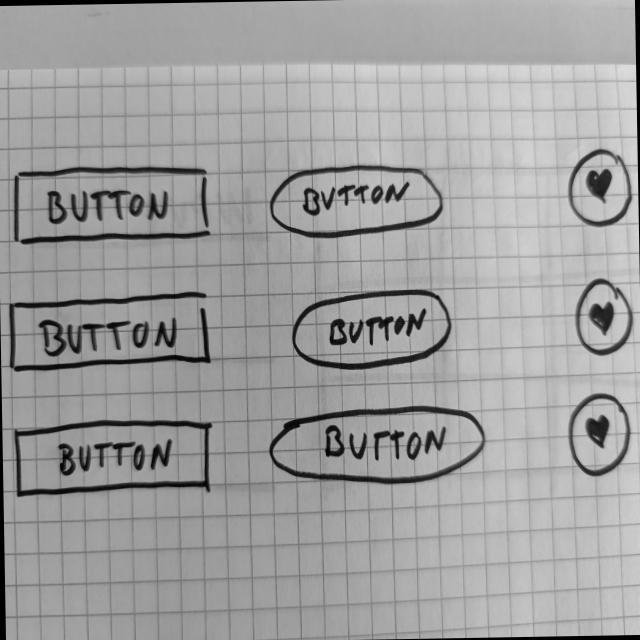 BUTTON BUTTON
BUTTON BUTTON
BUTTON BUTTON